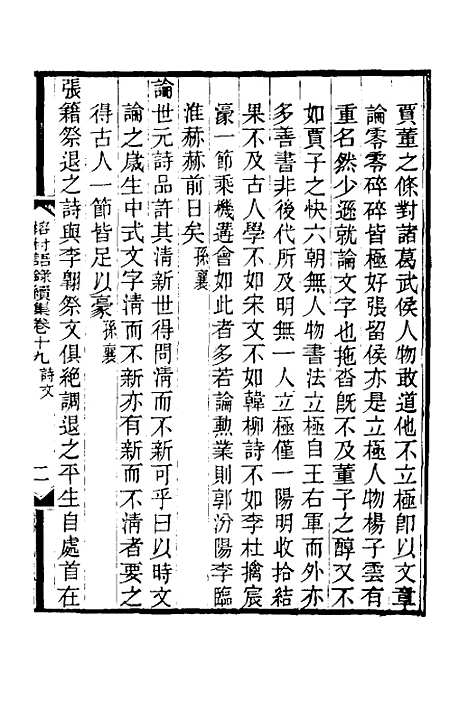 賈董之條對諸葛武侯人物敢道他不立極卽以文章
論零零碎碎皆極好張留侯亦是立極人物楊子雲有
重名然少遜就論文字也拖沓旣不及董子之醇又不
如賈子之快六朝無人物書法立極自王右軍而外亦
多善書非後代所及明無一人立極僅一陽明收拾結
果不及古人學不如宋文不如韓柳詩不如李杜擒宸
濠一節乘機遘會如此者多若論勳業則郭汾陽李臨
淮赫赫前日矣孫襄
論世元詩品許其清新世得問清而不新可乎曰以時文
論之歲生中式文字清而不新亦有新而不清者要之
得古人一節皆足以豪孫襄
張籍祭退之詩與李翺祭文俱絕調退之平生自處首在
榕村語錄續集卷十九 詩文
二